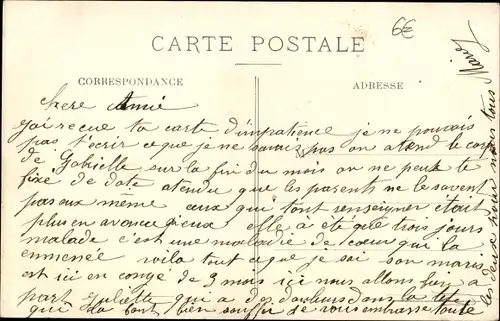 6€
CARTE POSTALE
CORRESPONDANCE
ADRESSE
chere Amie
J'ai recue ta carte d'impatience je ne pouvais
pas t'ecrir ce que je ne savais pas on atend le corp
de Gabrielle sur la fin du mois on ne peut te
fixé de date atendu que les parents ne le savent
pas aux meme ceux qui tont renseigner était
plus en avance qieux elle a été que trois jours
malade c'est une maladie de cœur qui la
enmenée voila tout ce que je sai son maris
est ici en congé de 3 mois ici nous allons bien a
part Juliette qui a des douleurs dans la tète
qui la font bien souffrir je vous embrasse toute
les deux pour nous tous
Marie